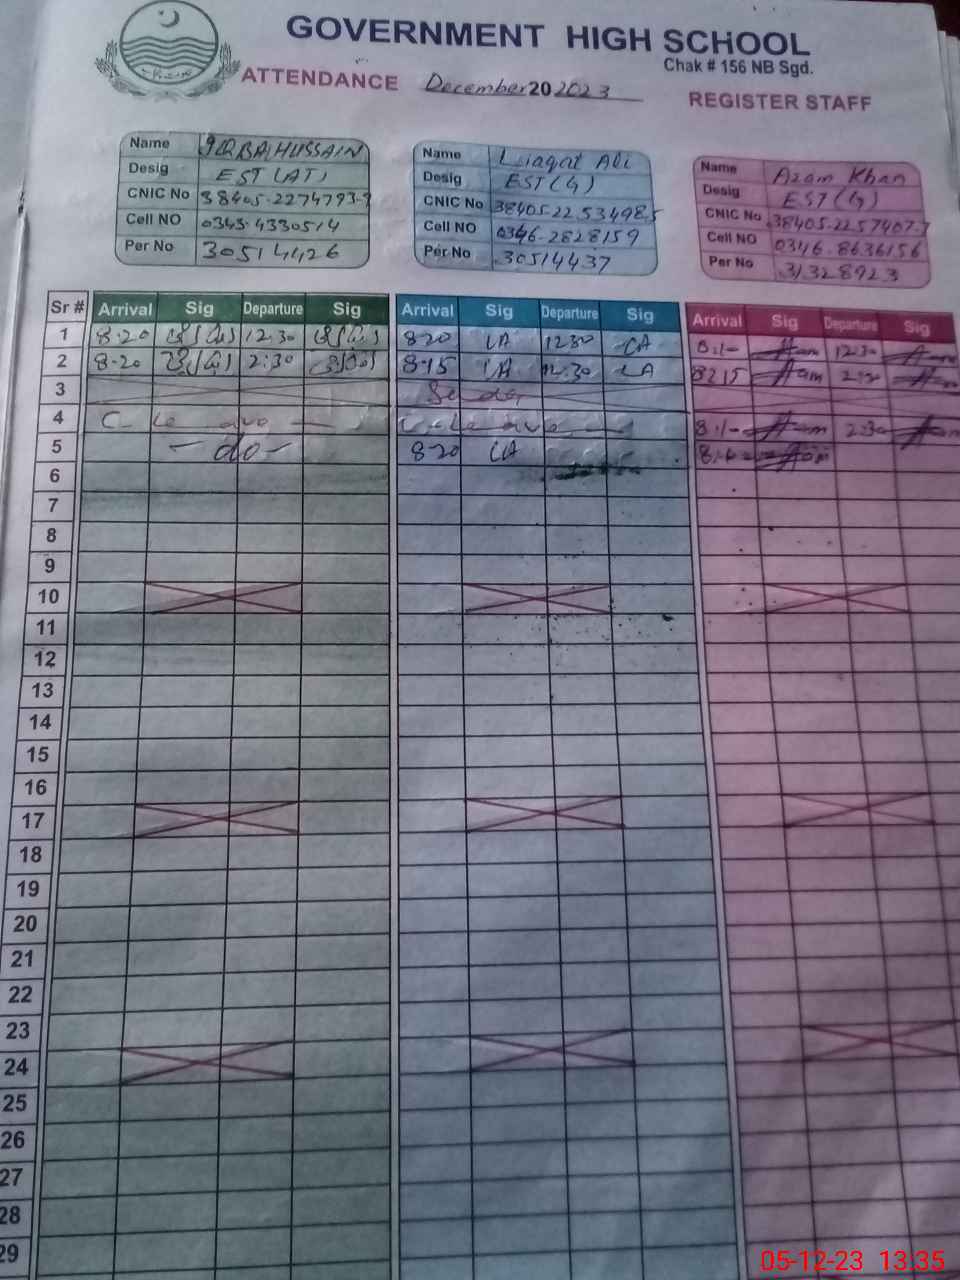 GOVERNMENT HIGH SCHOOL
Chak # 156 NB Sgd.
ATTENDANCE December 20 2023
REGISTER STAFF
Name IQBAL HUSSAIN
Desig EST (AT)
CNIC No 38405-2274793-
Cell NO 0343-4330514
Per No 30514426
Name Liaqat Ali
Desig EST (G)
CNIC No 38405-2253498-5
Cell NO 0346-2828159
Per No 30514437
Name Azam Khan
Desig EST (G)
CNIC No 38405-2257407-7
Cell NO 0346-8636156
Per No 31328923
Sr # Arrival Sig Departure Sig Arrival Sig Departure Sig Arrival Sig Departure Sig
1 8-20 12:30 820 LA 1230 LA 12:30
2 8-20 2:30 8-15 LA 12:30 LA 8215 2:30
3 Sunday
4 C-Leave C-Leave 2:30
5 -do- 8-20 LA
6
7
8
9
10
11
12
13
14
15
16
17
18
19
20
21
22
23
24
25
26
27
28
29
05-12-23 13:35